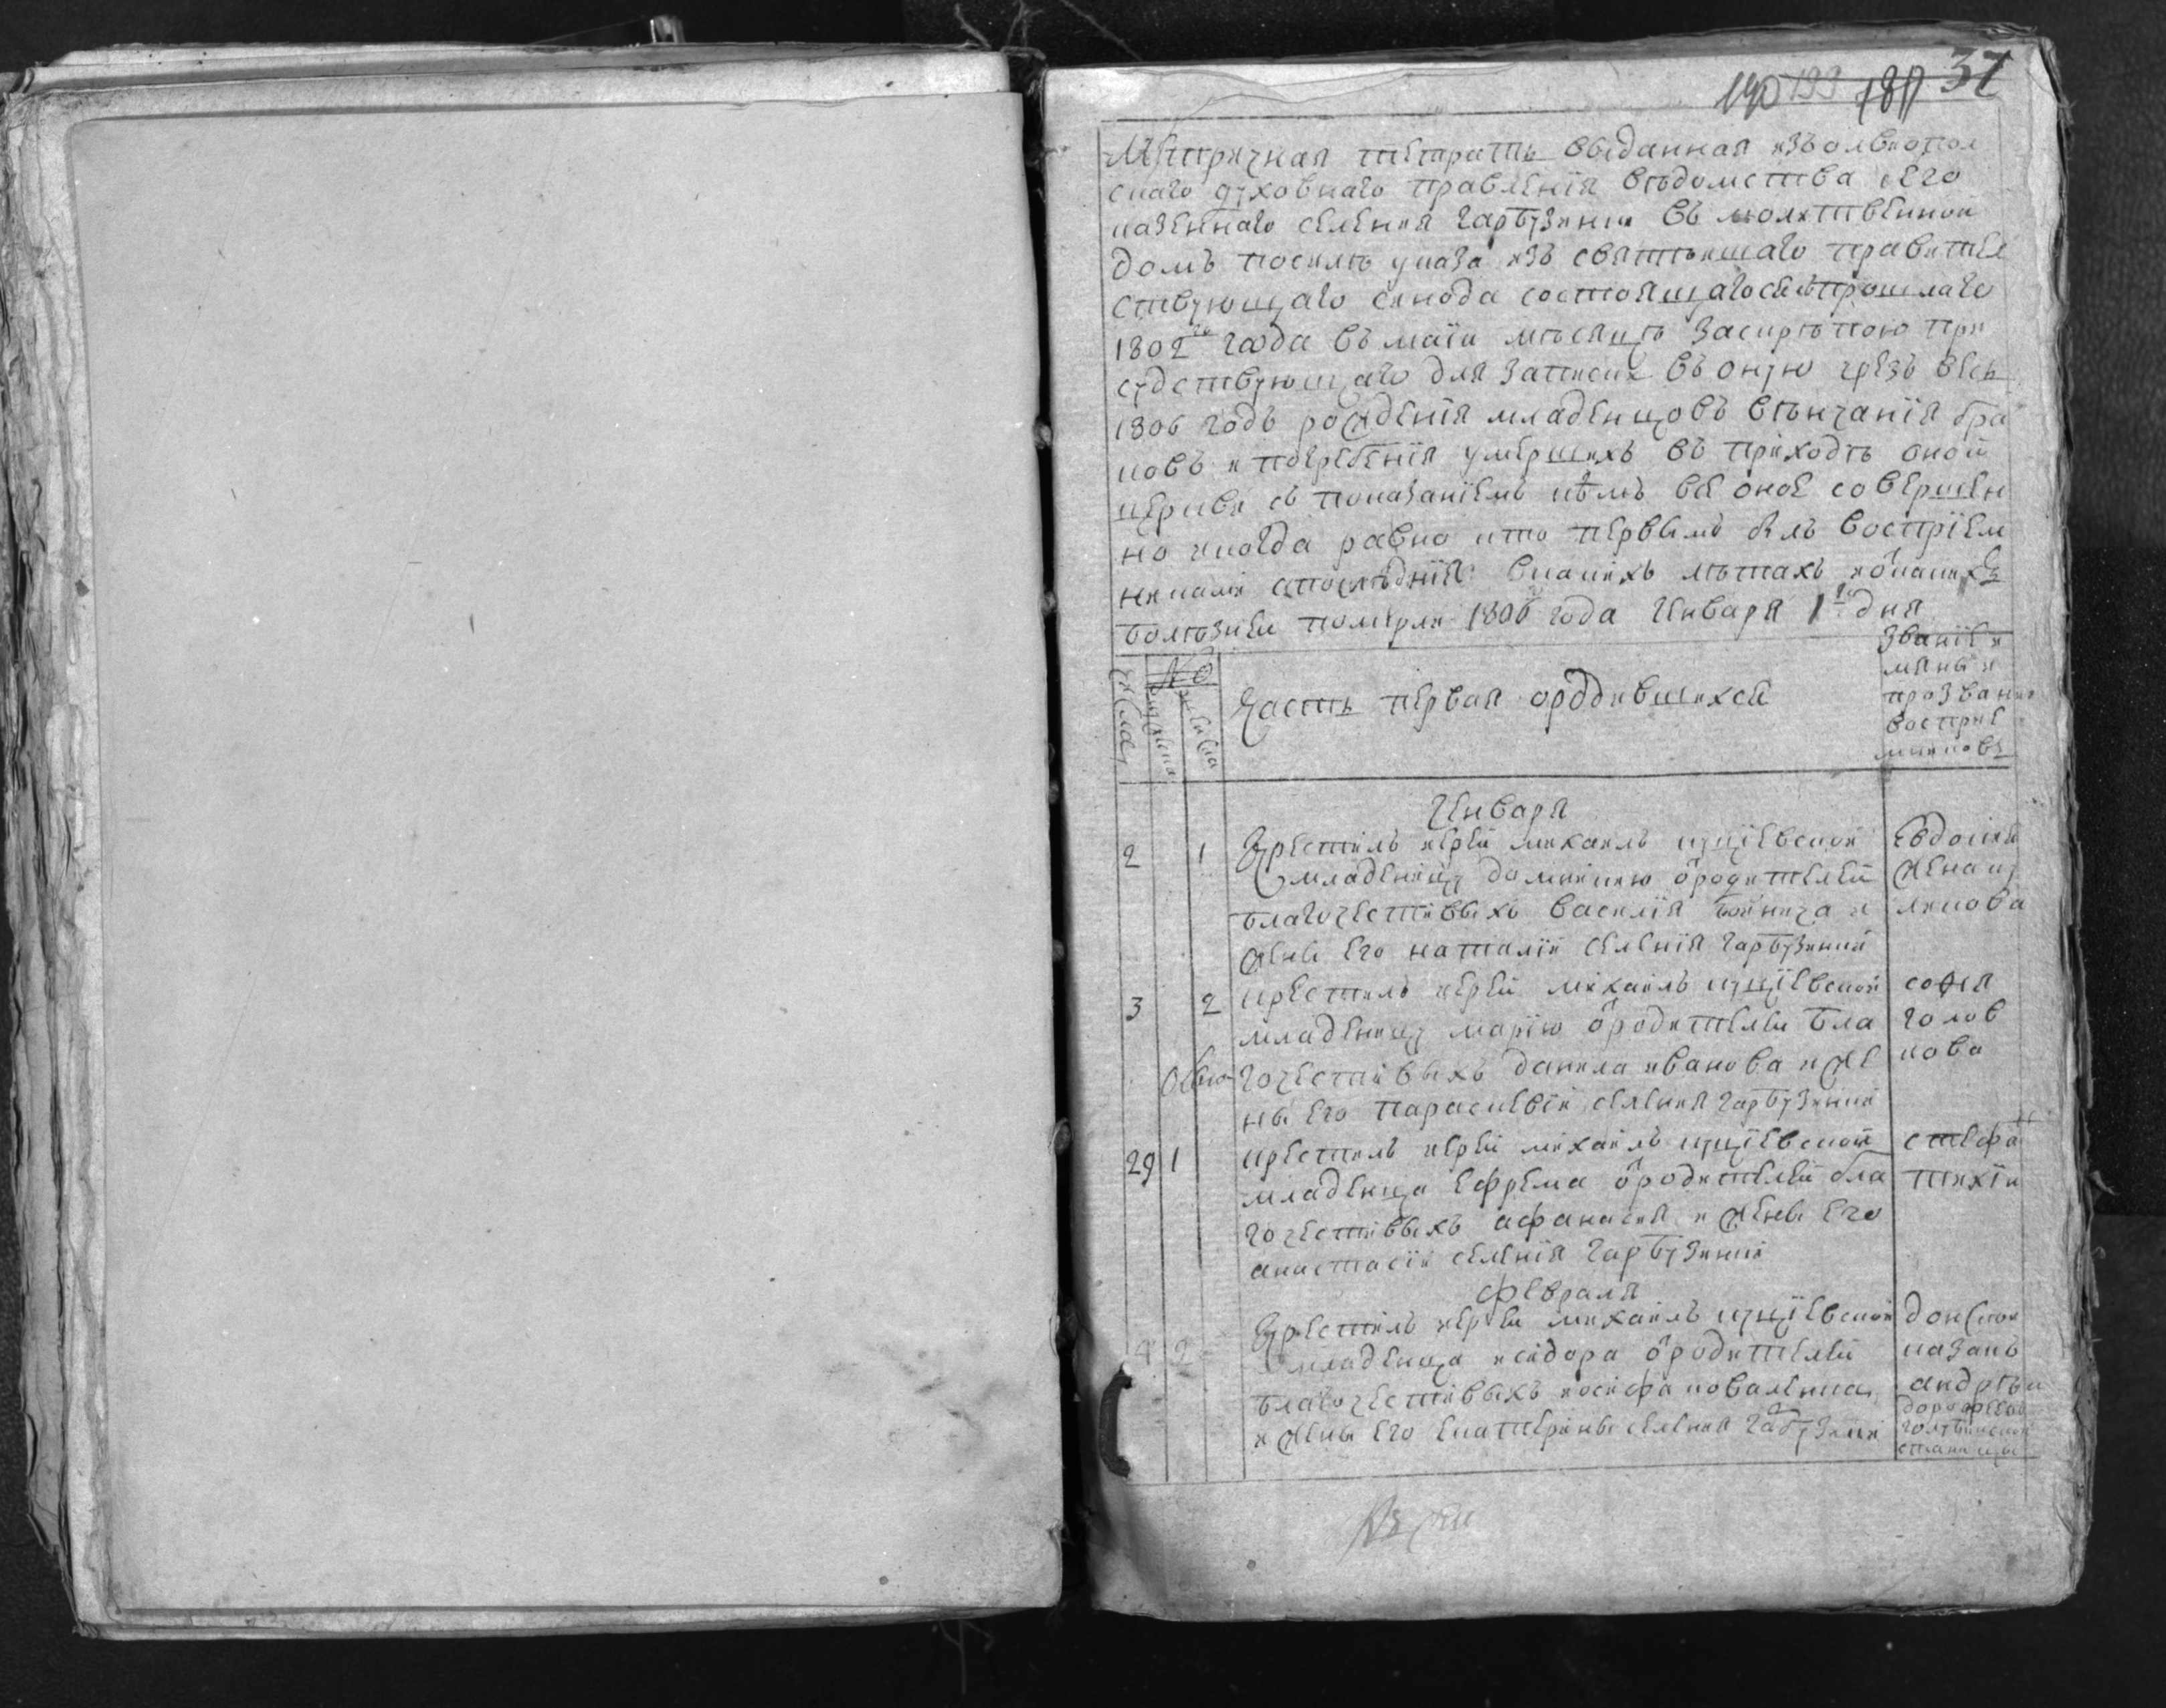 37
190 133 181
Метричная тетрать выданная изъ олвиопол
скаго духовнаго правления ведомства Его
казеннаго селения гарбузинки въ молитвенной
домъ посиле указа изъ святейшаго правител
ствующаго синода состоящагося прошлаго
1802го года въ маiи месяце за скрепою при
судствующаго для записки въ оную чрезъ весь
1806 годъ рождения младенцовъ венчания бра
ковъ и погребения умершихъ въ приходе оной
церкви съ показанiемъ кемъ все оное совершен
но и когда равно кто первымъ былъ восприем
никами а последнiя в какихъ летахъ и от какихъ
болезней померли 1806 года Генваря 1го дня
числа
№
мужеска
женска
Часть первая о родившихся
Званiе и
мяны и
прозвание
восприе
мниковъ
Генваря
2 1 Крестилъ иерей михаилъ куцiевской
младеницу домникию от родителей
благочестивыхъ василiя и
жены его наталiи селения гарбузинки
Евдокия
жена ку
ликова
3 2 крестилъ иерей михаилъ куцiевской
младеницу марiю от родителей бла
гочестивыхъ данила иванова и же
ны его параскевiи селения гарбузинки
софия
голов
кова
29 1 крестилъ иерей михаилъ куцiевской
младенца ефрема от родителей бла
гочестивыхъ афанасия и жены его
анастасiи селения гарбузинки
стефан
Февраля
4 2 Крестилъ иерей михаилъ куцiевской
младенца исидора от родителей
благочестивыхъ иосифа коваленка
и жены его екатерины селения гарбузинки
донской
казакъ
андрей
дорофеевъ
станицы